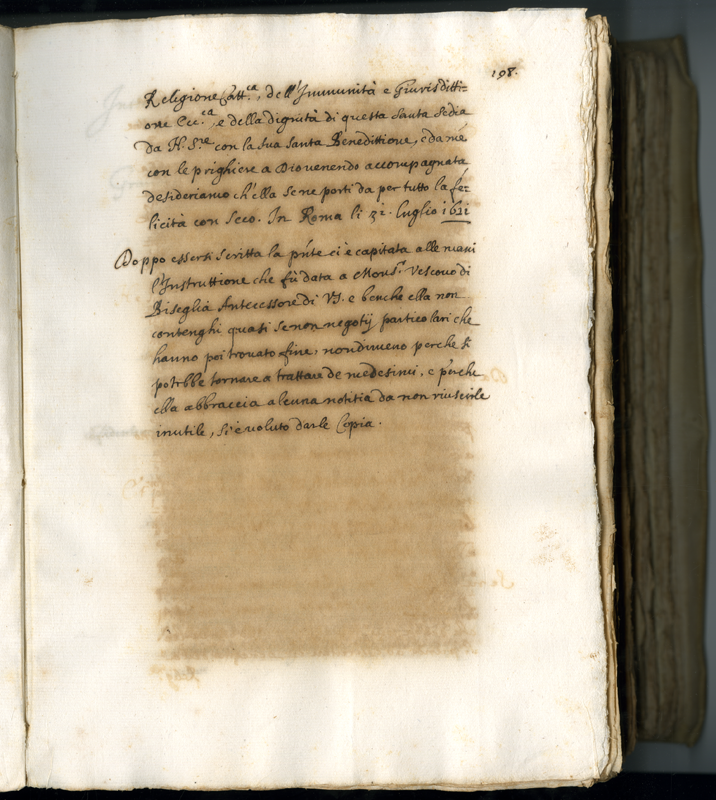 198.
Religione Catt.ca, dell'Immunità e Giurisditti-
one Ecc.ca, e della dignità di questa Santa Sedia
da N. S.re con la sua Santa Benedittione, e da me
con le prighiere a Dio venendo accompagnata
desideriamo ch'ella se ne porti da per tutto la fe-
licità con seco. In Roma li 31. luglio 1621
Doppo essersi scritta la p'nte ci è capitata alle mani
l'Instruttione che fù data a Mons.r Vescovo di
Biseglia Antecessore di VS. e benche ella non
contenghi quasi se non negotij particolari che
hanno poi trovato fine, nondimeno perche si
potrbbe tornare a trattare de medesimi, e perche
ella abbraccia alcuna notitia da non riuscirle
inutile, si è voluto darle Copia.